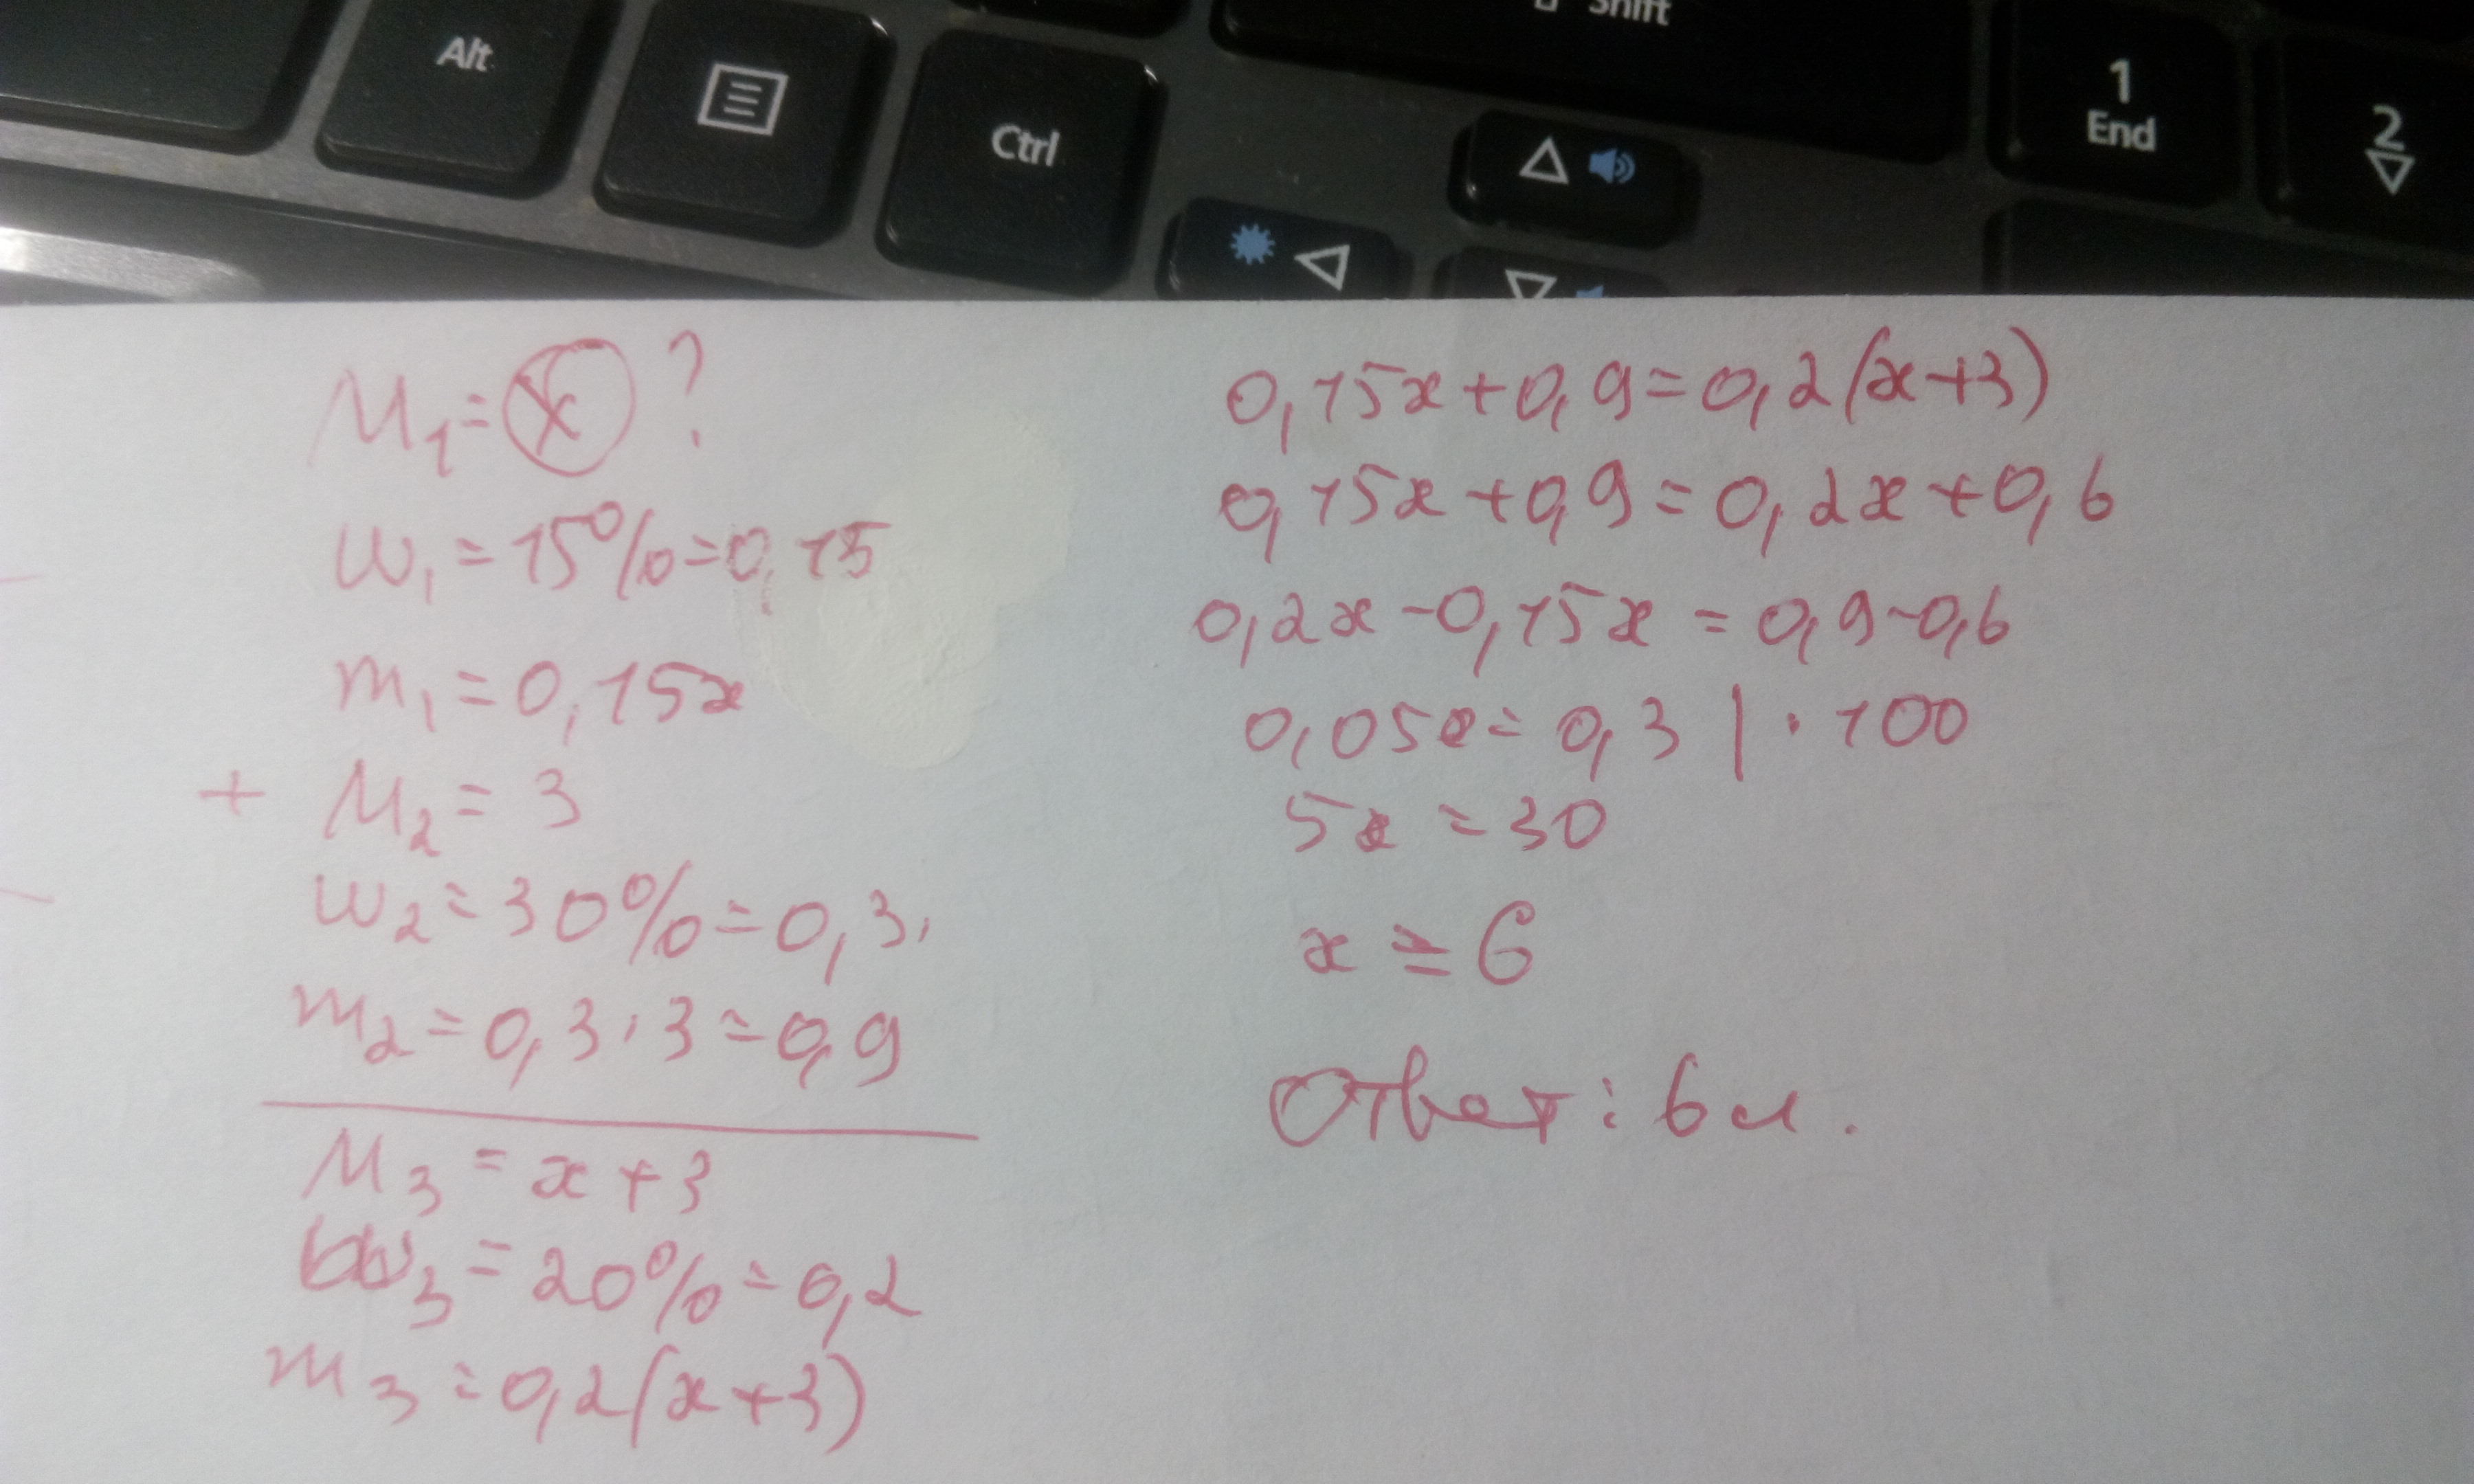 Alt
Ctrl
Shift
1
End
2
M₁ = x ?
ω₁ = 15% = 0,15
m₁ = 0,15x
+ M₂ = 3
ω₂ = 30% = 0,3,
m₂ = 0,3 · 3 = 0,9
M₃ = x + 3
ω₃ = 20% = 0,2
m₃ = 0,2(x+3)
0,15x + 0,9 = 0,2(x+3)
0,15x + 0,9 = 0,2x + 0,6
0,2x - 0,15x = 0,9 - 0,6
0,05x = 0,3 | · 100
5x = 30
x = 6
Ответ: 6 л.